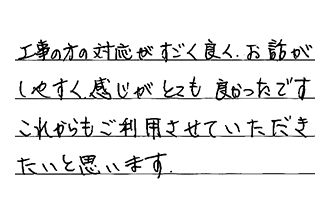 工事の方の対応がすごく良く、お話が
しやすく感じがとても良かったです
これからもご利用させていただき
たいと思います.